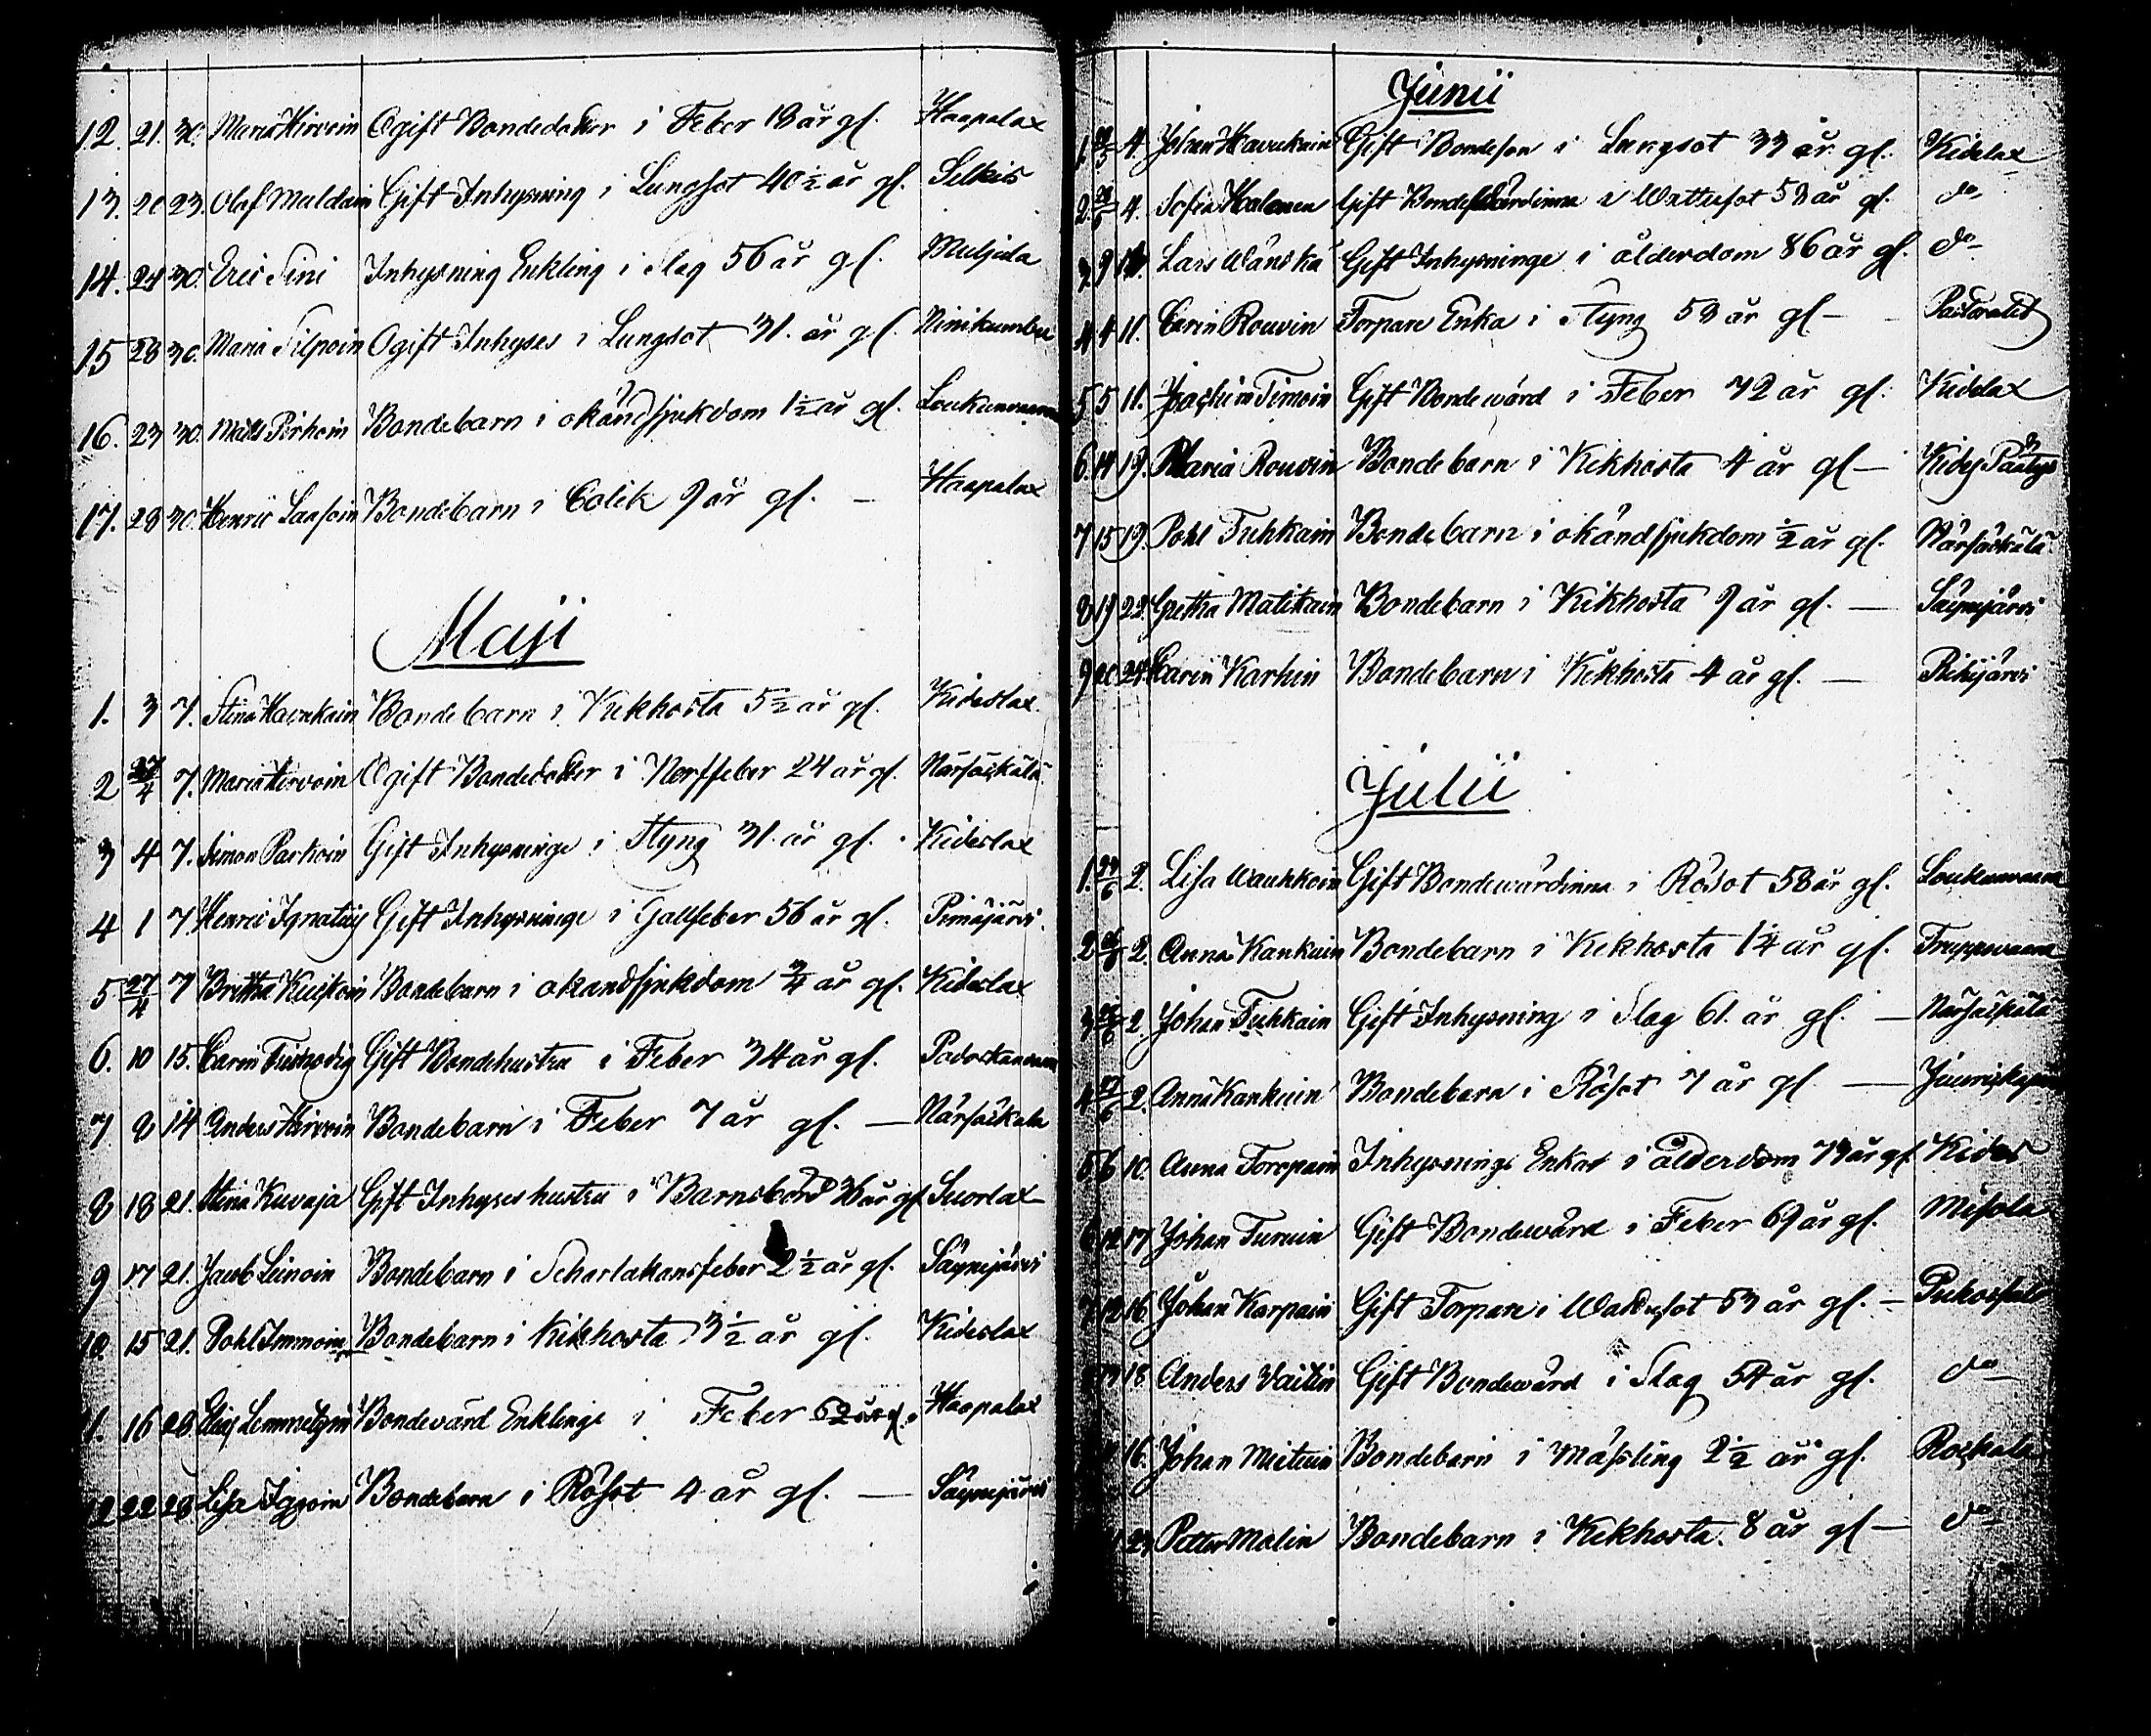 12. 21. 30. Maria Hirvoin Ogift Bondedotter i Feber 18 år gl. Haapalax
13. 20 23. Olof Muldain Gift Inhysning i Lungsot 40 1/2 år gl. Selkis
14. 24 30. Eric Sini Inhysning Enkling i Slag 56 år gl. Muljula
15 28 30. Maria Silpoin Ogift Inhyses i Lungsot 31. år gl. Ninikumbu
16. 23 30. Matts Pirhoin Bondebarn i okändsjukdom 1 1/2 år gl. Loukunvaara
17. 28 30. Henric Laasoin Bondebarn i Colik 9 år gl. — Haapalax
Maji
1. 3 7. Stina Havukain Bondebarn i Kikhosta 5 1/2 år gl. Kideslax
2 27/4 7. Maria Hirvoin Ogift Bondedotter i Nerffeber 24 år gl. Närsäkälä
3 4 7. Simon Parkoin Gift Inhysninge i Styng 31. år gl. Kideslax
4 1 7. Henric Ignatiuj Gift Inhysninge i Gallfeber 56 år gl. Pimäjärvi.
5 27/4 7 Brittha Kuikoin Bondebarn i okandsjukdom 3/4 år gl. Kideslax
6. 10 15. Carin Gift Bondehustru i Feber 34 år gl. Podoskavaara
7 8 14 Anders Hirvoin Bondebarn i Feber 7 år gl. — Närsäkälä
8 18 21. Stina Kuvaja Gift Inhyseshustru i Barnsbörd 36 år gl Suorlax
9 17 21. Jacob Leinoin Bondebarn i Scharlakansfeber 2 1/2 år gl. Säynejärvi
10. 15 21. Pohl Immoin Bondebarn i Kikhosta 3 1/2 år gl. Kideslax
11. 16 28. Bondevärd Enklinge i Feber 62 år gl. Haapalax
12 22 28. Lisa Bondebarn i Rösot 4 år gl. — Säynejärvi
Junii
1. 4. Johan Havukain Gift Bondeson i Lungsot 33 år gl. Kidelax
2. 4. Sofia Halonen Gift Bondevärdinna i Wattusot 53 år gl. do
3. 9 Lars Wänskä Gift Inhysninge i ålderdom 86 år gl. do
4 4 11. Carin Rouvin Torpare Enka i Styng 53 år gl — Pastoralet
5 5 11. Joachim Timoin Gift Bondevärd i Feber 72 år gl. Kidelax
6. 14 19. Maria Rouvin Bondebarn i Kikhosta 4 år gl — Kidesj
7 15 19. Pohl Tuhkain Bondebarn i okändsjukdom 1/2 år gl. Närsäkälä
8 19 22. Gretha Matikain Bondebarn i Kikhosta 9 år gl. — Säynejärvi
9 20 24. Carin Karhin Bondebarn i Kikhosta 4 år gl. — Rihijärvi
Julii
1. 24/6 2. Lisa Wauhkoin Gift Bondewärdinna i Rösot 58 år gl. Loukunvaara
2 26/6 2. Anna Kankain Bondebarn i Kikhosta 1 1/4 år gl. Truppovaara
3 2 Johan Tuhkain Gift Inhysning i Slag 61. år gl. — Närsäkälä
4 27/6 2. Anna Kankain Bondebarn i Rösot 7 år gl —
5 6 10. Anna Toropain Inhysninge Enka i ålderdom 73 år gl. Kides
6 12 17 Johan Turuin Gift Bondewärd i Feber 69 år gl. Misola
7 12 16 Johan Karpain Gift Torpare i Wattusot 53 år gl. — Puhossalo
18. Anders Vaitin Gift Bondewärd i Slag 54 år gl. do
16. Johan Mietuin Bondebarn i Mässling 2 1/2 år gl. Roskala
23 Petter Molin Bondebarn i Kikhosta. 8 år gl — do